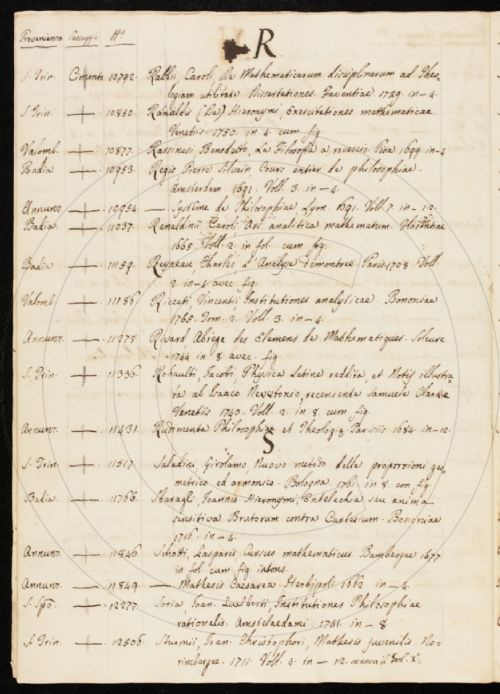 R
Provenienza. Passaggi N.o
S. Trin. Cimento 10792. Rabbii, Caroli, de Mathematicarum disciplinarum ad Theo-
logiam utilitate Dissertationes. Faventiae. 1729. in-4.
S. Trin. 10850. Rainaldis (De) Hieronymi, Exercitationes mathematicae
Venetiis. 1750. in 4. cum fig
Valomb. 10877. Rassinesi Benedetto, La Filosofia a rovescio Pisa 1699. in-4
Badia 10953. Regis Pierre Silvain, Cours entier de philosophie.
Amsterdam. 1691. Voll. 3. in-4.
Annunz. 10954. — Système de Philosophie Lyon. 1691. Voll. 7. in-12.
Badia. 11037. Renaldinii Caroli, Ars analitica mathematum. Florentiae
1665. Voll. 2. in fol. cum fig.
Badia 11159. Reyneau, Charles L'Analyse démontrée. Paris 1708. Voll
2. in-4 avec fig.
Valomb. 11186. Riccati, Vincentii Institutiones analyticae. Bononiae
1765. Tom. 2. Voll. 3. in-4.
Annunz. 11278. Rivard Abrege des Elemens de Mathematiques.
1744 in 8. avec. fig
S. Trin. 11336. Rohaulti, Jacobi, Physica Latine reddita, et Notis illustra-
ta ab Isaaco Newtonio, recensente Samuele Clarke
Venetiis 1740. Voll. 2. in 8. cum fig.
Annunz. 11431. Rudimenta Philosophiae et Theologiae Parisiis 1684. in-12.
S
S. Trin. 11517. Saladini, Girolamo, Nuovo metodo delle proporzioni geo-
metrico ed armonico. Bologna. 1761. in 8. con fig.
Badia. 11766. Sbaragli Joannis Hieronymi, Entelechia seu anima
sensitiva Brutorum contra Cartesium. Bononiae
1716. in-4.
Annunz. 11846 Schotti, Gasparis Cursus mathematicus Bambergae 1677
in fol. cum fig.
Annunz. 11849. — Mathesis Caesarea. Herbipoli 1662 in-4.
S. Spo. 12277. Soria, Joan. Institutiones Philosophiae
rationalis. Amstelaedami. 1741. in-8
S. Trin. 12506. Sturmii, Joan. Christophori, Mathesis juvenilis. No-
rimbergae. 1711. Voll. 4. in-12.